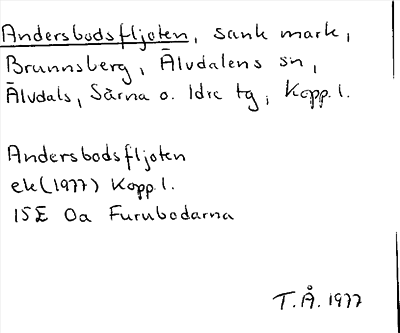 Andersbodsfljoten, sank mark,
Brunnsberg, Älvdalens sn,
Älvdals, Särna o. Idre tg, Kopp. l.
Andersbodsfljoten
ek (1977) Kopp. l.
15E 0a Furubodarna
T.Å. 1977